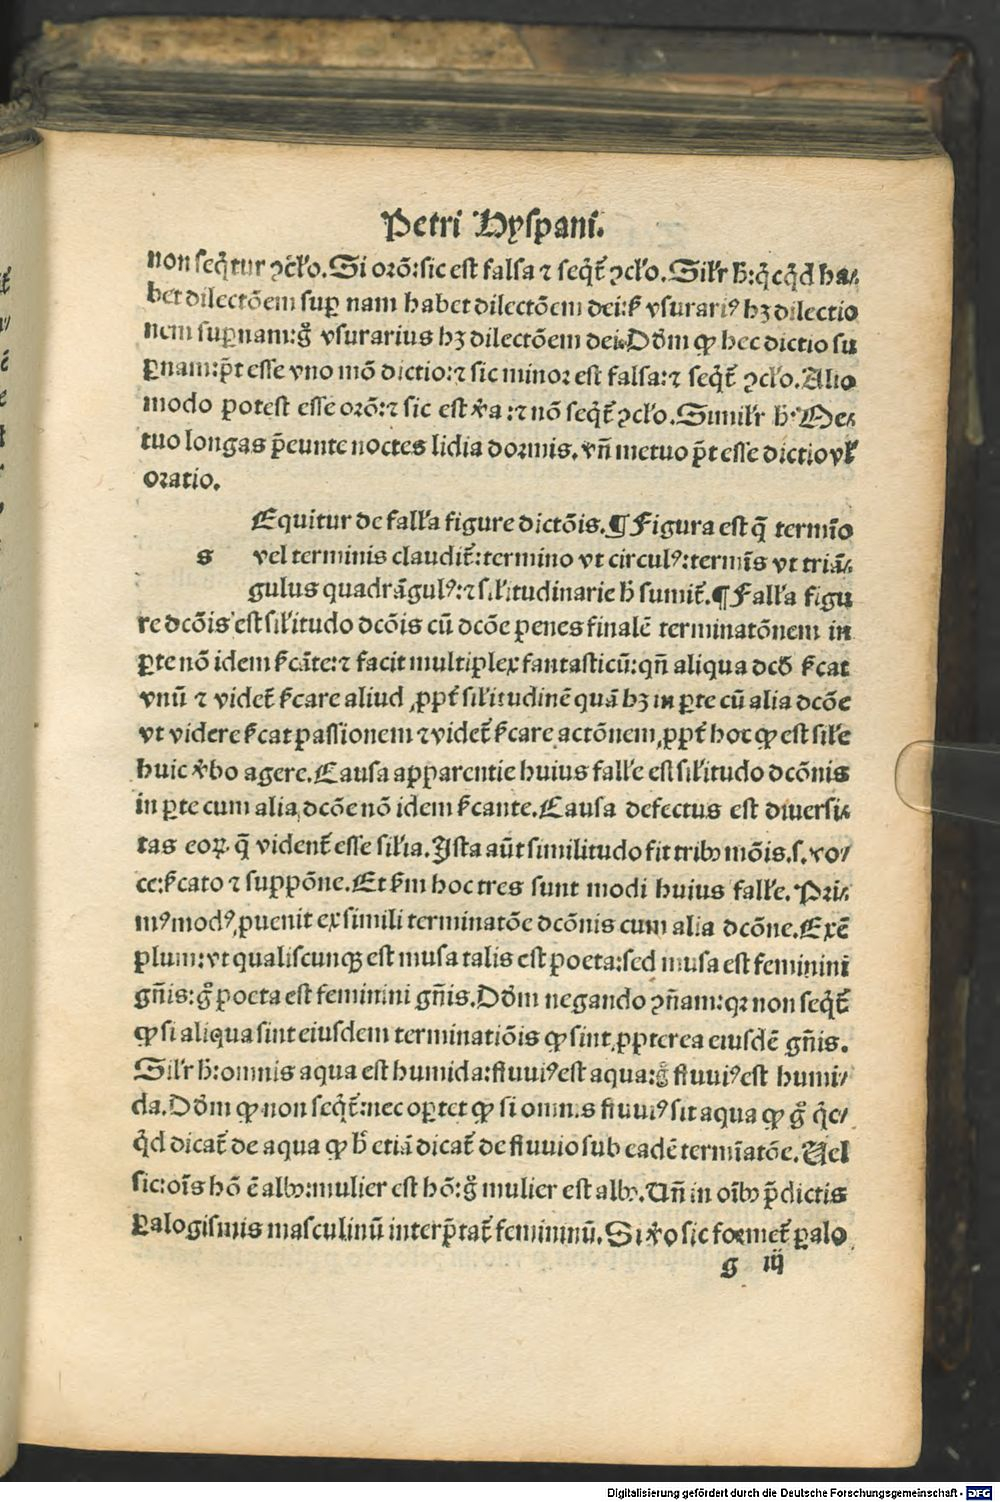 Petri Hyspani.
non seq̄tur ꝯcl'o. Si orō: sic est falsa ⁊ seq̄t̄ ꝯcl'o. Sil'r h̄: q̄cq̄d ha⸗
bet dilectōem suꝑ nam habet dilectōem dei: s̄ vsurariꝰ hꝫ dilectio
nem suꝑnam: g̊ vsurarius hꝫ dilectōem dei. Dd̄m ꝙ hec dictio su
ꝑnam: p̄t esse vno mō dictio: ⁊ sic minor est falsa: ⁊ seq̄t̄ ꝯcl'o. Alio
modo potest esse orō: ⁊ sic est v̄a: ⁊ nō seq̄t̄ ꝯcl'o. Simil'r h̄. Me⸗
tuo longas p̄eunte noctes lidia dormis. vn̄ metuo p̄t esse dictio vl'
oratio.
Equitur de fall'a figure dictōis. ¶ Figura est q̄ termīo
s vel terminis claudit̄: termino vt circulꝰ: termīs vt triā⸗
gulus quadrāgulꝰ: ⁊ sil'itudinarie h̄ sumit̄. ¶ Fall'a figu
re dcōis est sil'itudo dcōis cū dcōe penes finalē terminatōnem in
ꝑte nō idem s̄cāte: ⁊ facit multiplex fantasticū: qn̄ aliqua dcō s̄cat
vnū ⁊ videt̄ s̄care aliud ꝓpt̄ sil'itudinē quā hꝫ in ꝑte cū alia dcōe
vt videre s̄cat passionem ⁊ videt̄ s̄care actōnem, ꝓpt̄ hoc ꝙ est sil'e
huic v̄bo agere. Causa apparentie huius fall'e est sil'itudo dcōnis
in ꝑte cum alia dcōe nō idem s̄cante. Causa defectus est diuersi⸗
tas eoꝝ q̄ vident̄ esse sil'ia. Ista aūt similitudo fit tribꝰ mōis. s. vo⸗
ce: s̄cato ⁊ suppōne. Et s̄m hoc tres sunt modi huius fall'e. Pri⸗
mꝰ modꝰ ꝓuenit ex simili terminatōe dcōnis cum alia dcōne. Exē
plum: vt qualiscunqꝫ est musa talis est poeta: sed musa est feminini
gn̄is: g̊ poeta est feminini gn̄is. Dd̄m negando ꝯn̄am: qꝛ non seq̄t̄
ꝙ si aliqua sint eiusdem terminatiōis ꝙ sint, ꝓpterea eiusdē gn̄is.
Sil'r h̄: omnis aqua est humida: fluuiꝰ est aqua: g̊ fluuiꝰ est humi⸗
da. Dd̄m ꝙ non seq̄t̄: nec oꝑtet ꝙ si omnis fluuiꝰ sit aqua ꝙ g̊ q̄c⸗
q̄d dicat̄ de aqua ꝙ h̄ etiā dicat̄ de fluuio sub eadē termīatōe. Uel
sic: oīs hō ē albꝰ: mulier est hō: g̊ mulier est albꝰ. Un̄ in oībꝰ p̄dictis
ꝑalogismis masculinū interp̄tat̄ femininū. Si v̄o sic formet̄ ꝑalo
g iij
Digitalisierung gefördert durch die Deutsche Forschungsgemeinschaft - DFG